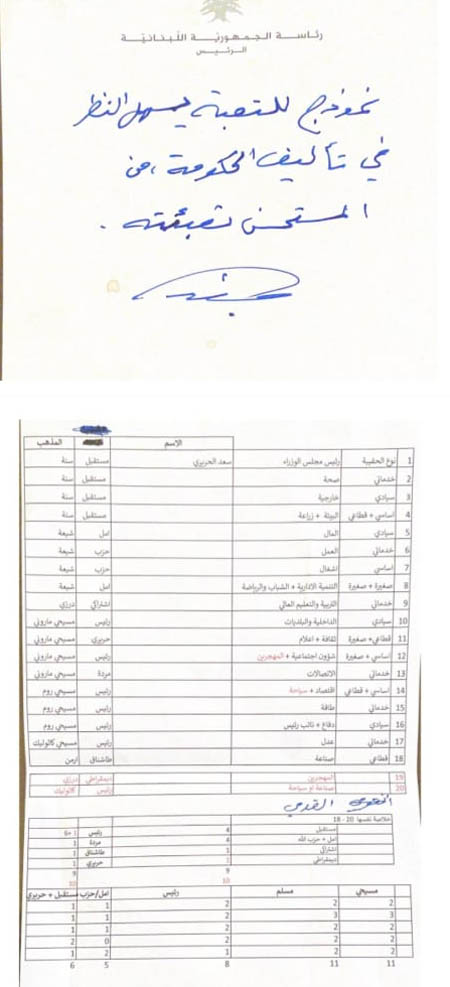 رئاسة الجمهورية اللبنانية
الرئيس
نموذج للتعبئة يسهل النظر
في تأليف الحكومة، من
المستحسن تعبئته.
الاسم المذهب
1 نوع الحقيبة رئيس مجلس الوزراء سعد الحريري مستقبل سنة
2 خدماتي صحة مستقبل سنة
3 سيادي خارجية مستقبل سنة
4 اساسي + قطاعي البيئة + زراعة مستقبل سنة
5 سيادي المال امل شيعة
6 خدماتي العمل حزب شيعة
7 اساسي اشغال حزب شيعة
8 صغيرة + صغيرة التنمية الادارية + الشباب والرياضة امل شيعة
9 خدماتي التربية والتعليم العالي اشتراكي درزي
10 سيادي الداخلية والبلديات رئيس مسيحي ماروني
11 قطاعي + صغيرة ثقافة + اعلام حريري مسيحي ماروني
12 اساسي + صغيرة شؤون اجتماعية + المهجرين رئيس مسيحي ماروني
13 خدماتي الاتصالات مردة مسيحي ماروني
14 اساسي + قطاعي اقتصاد + سياحة رئيس مسيحي روم
15 خدماتي طاقة رئيس مسيحي روم
16 سيادي دفاع + نائب رئيس رئيس مسيحي روم
17 خدماتي عدل رئيس مسيحي كاثوليك
18 قطاعي صناعة طاشناق ارمن
19 المهجرين ديمقراطي درزي
20 صناعة او سياحة رئيس كاثوليك
خلاصة نفسها 20 - 18
مستقبل 4 رئيس 6+1
امل + حزب الله 4 مردة 1
اشتراكي 1 طاشناق 1
ديمقراطي 1 حريري 1
9 9
10 10
مسيحي مسلم رئيس امل/حزب مستقبل + حريري
2 2 2 1 1
3 3 2 1 1
2 2 2 1 1
2 2 2 0 2
2 2 1 2 1
11 11 8 5 6